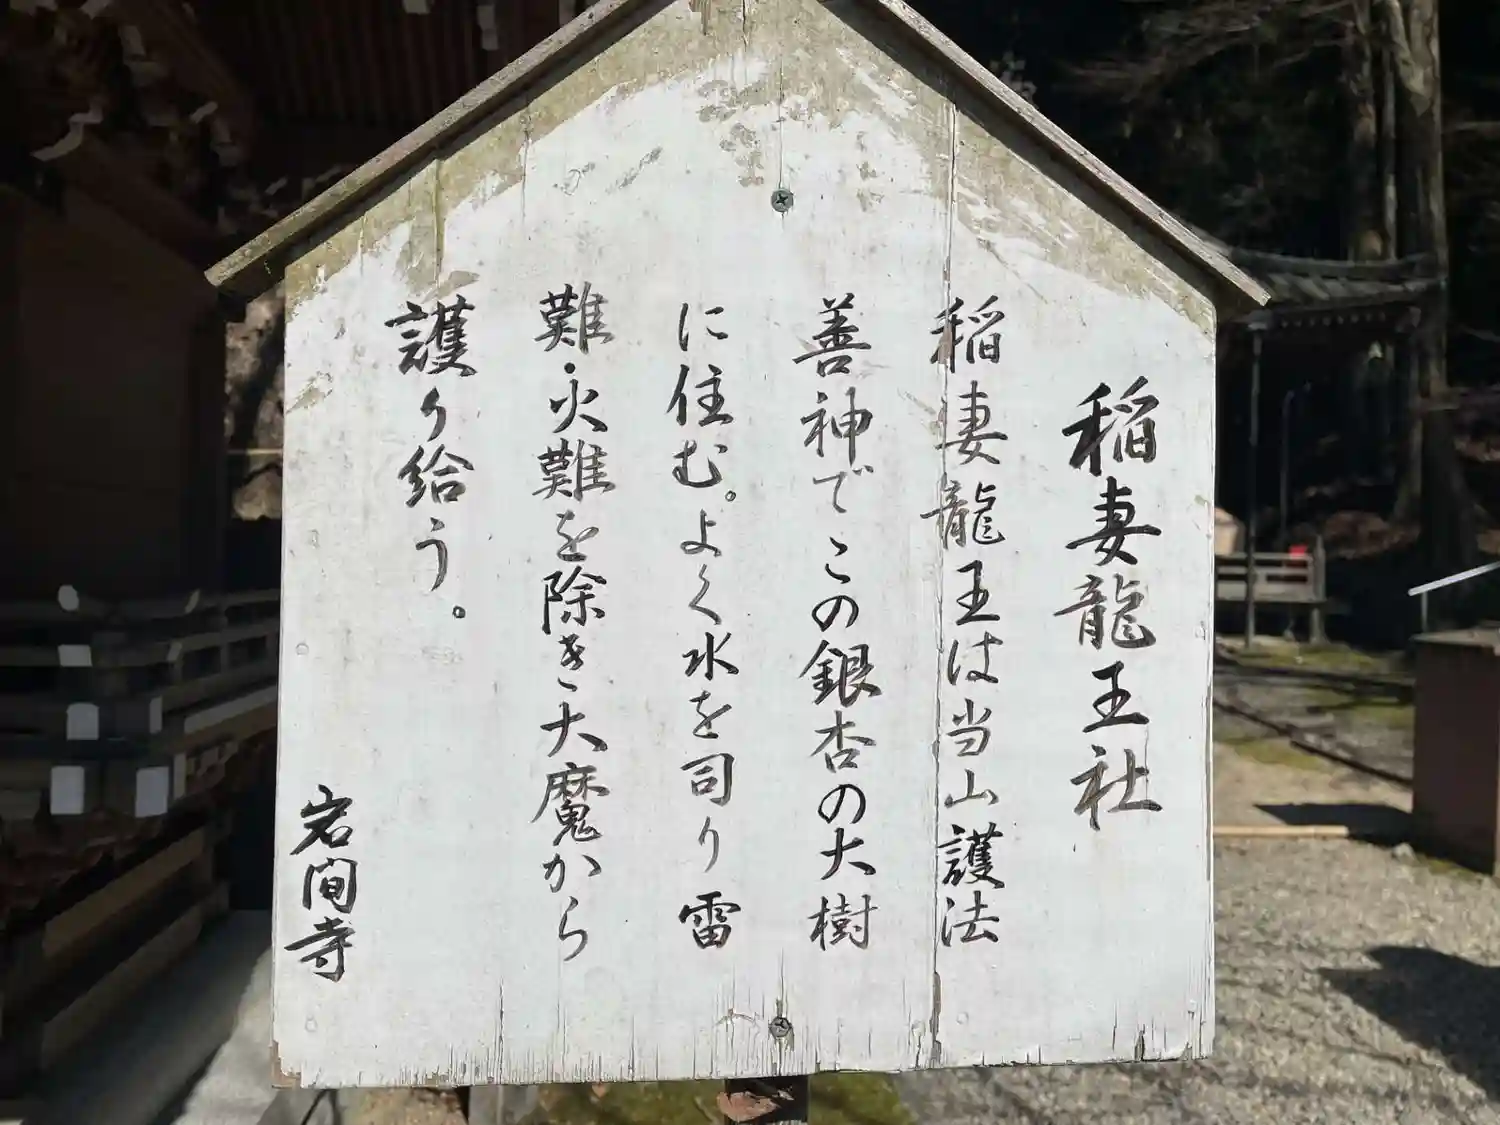 稲妻龍王社
稲妻龍王は当山護法
善神でこの銀杏の大樹
に住む。よく水を司り雷
難・火難を除き大魔から
護り給う。
岩間寺